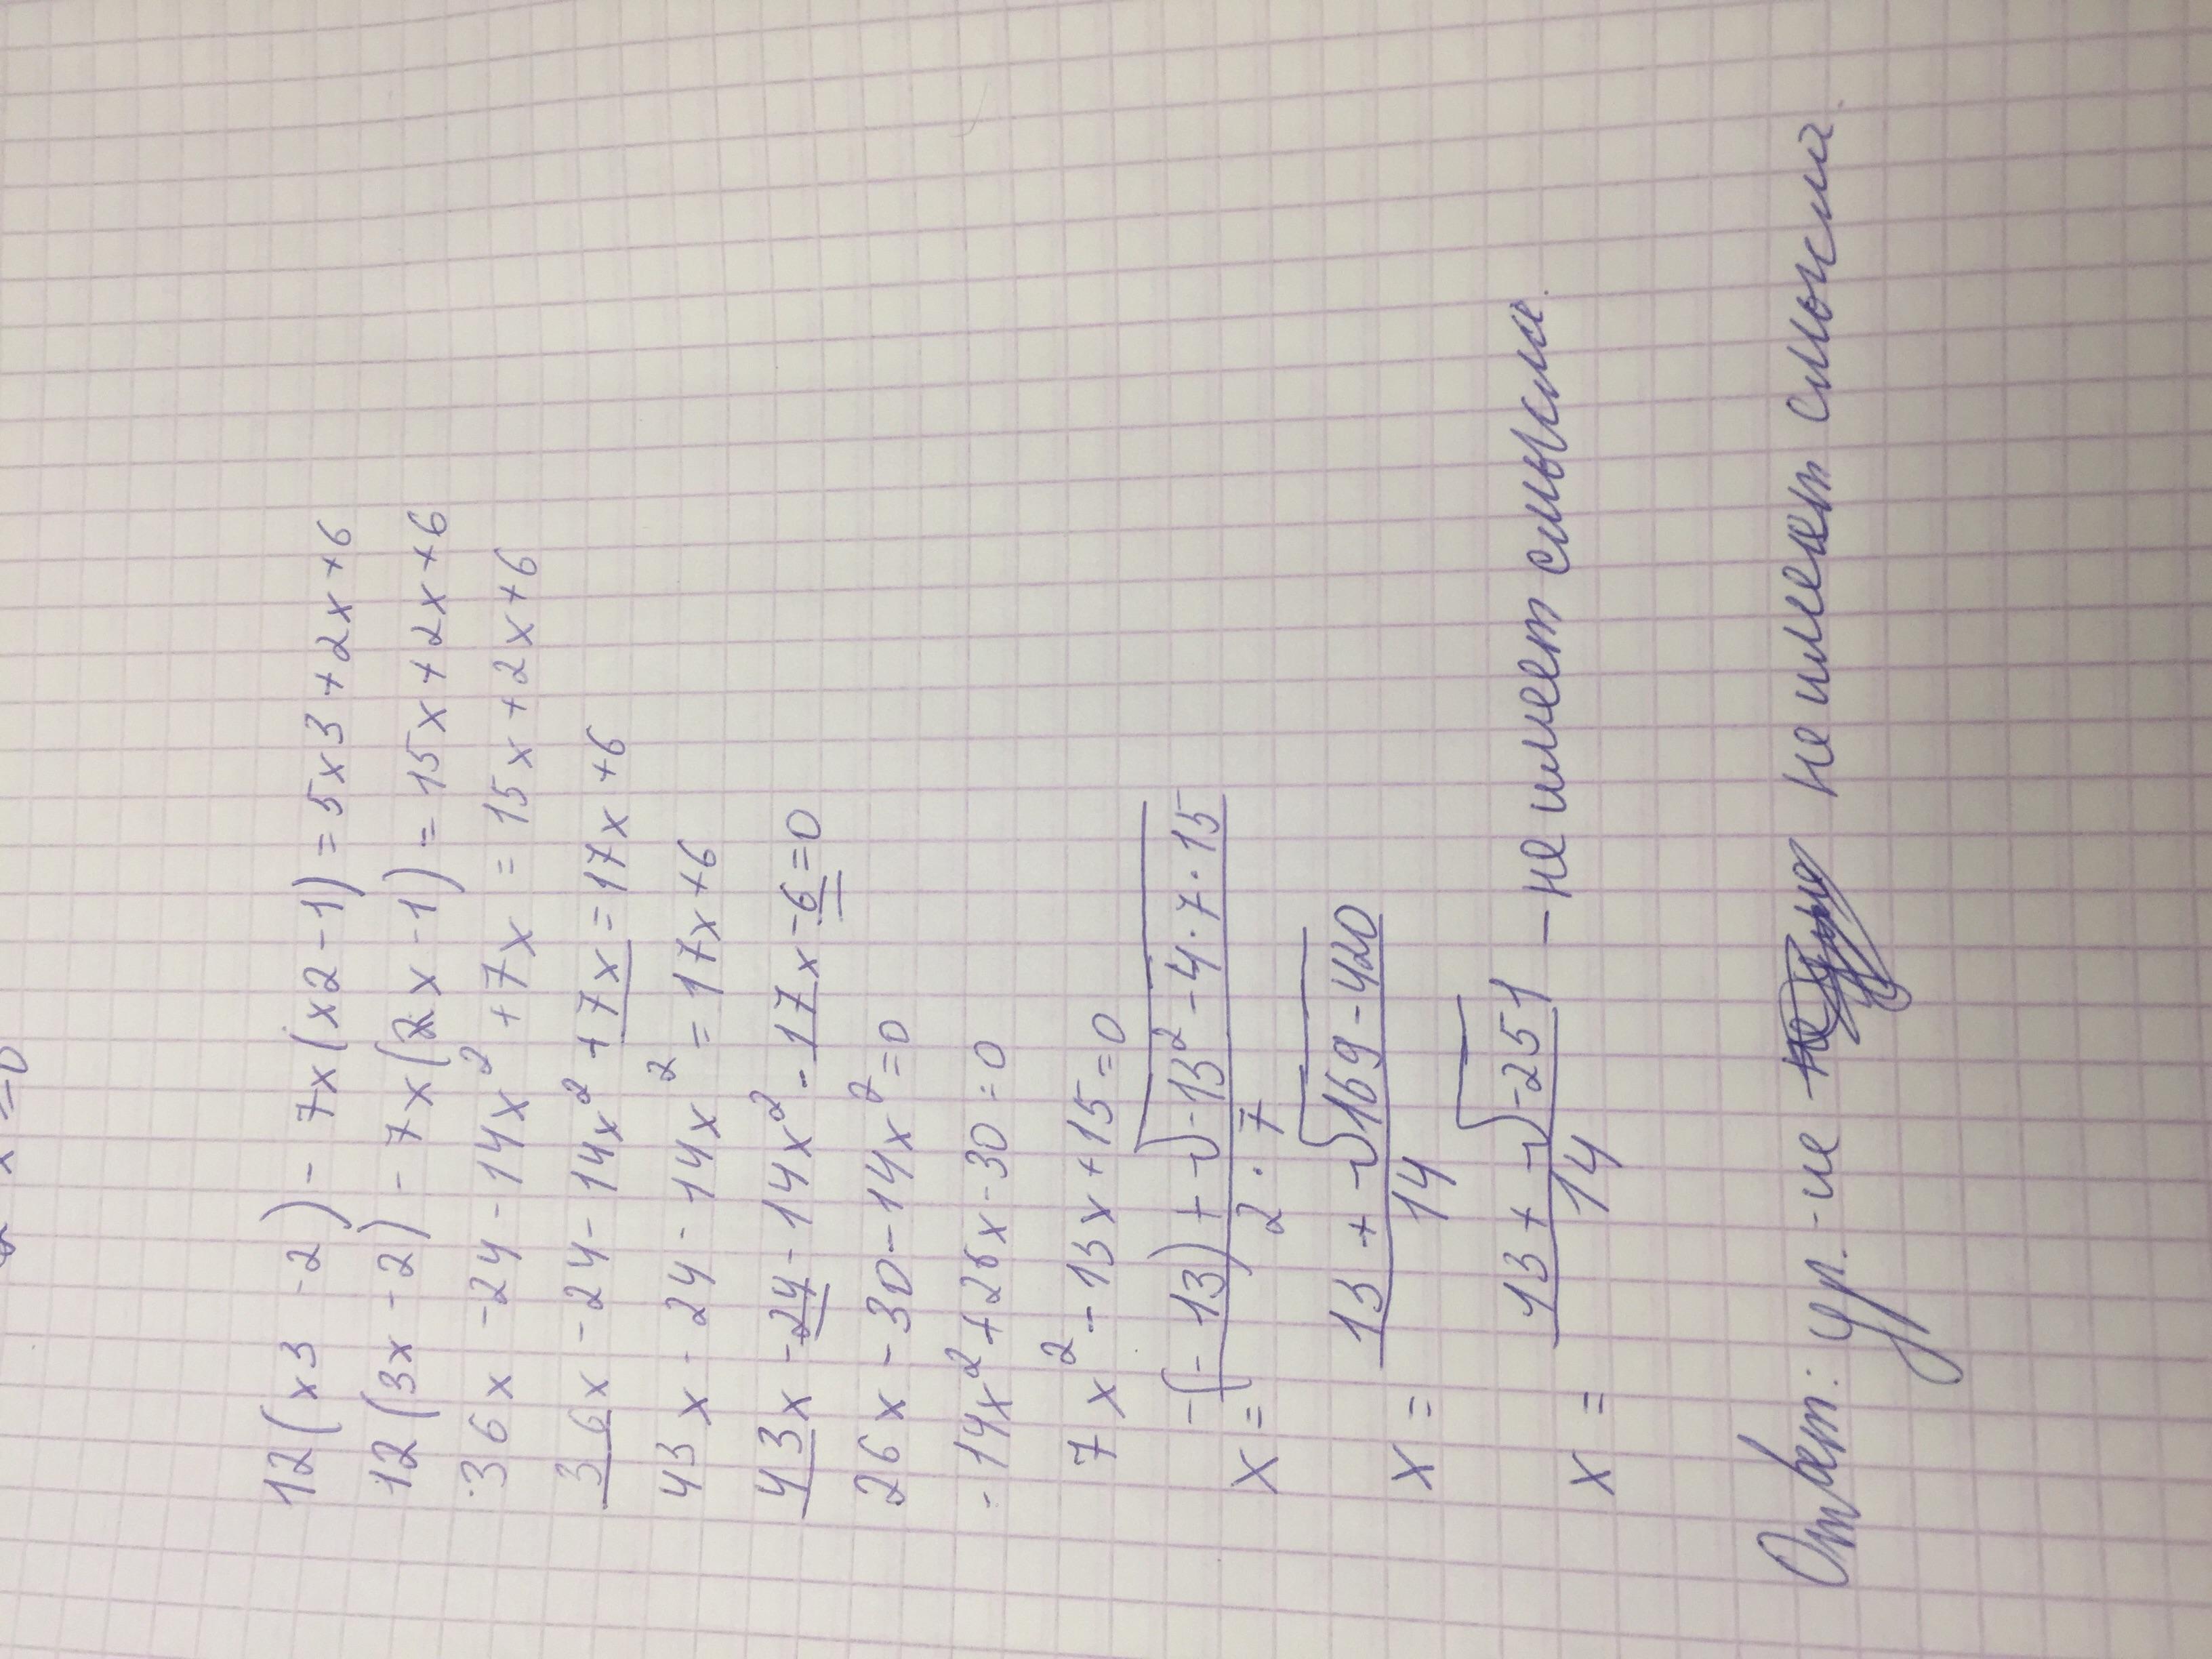 12(x3 -2) - 7x(x2-1) = 5x3+2x+6
12(3x-2) - 7x(2x-1) = 15x+2x+6
36x -24 - 14x² +7x = 15x+2x+6
36x -24 - 14x² +7x = 17x+6
43x - 24 - 14x² = 17x+6
43x -24 - 14x² - 17x -6=0
26x -30 -14x²=0
-14x²+26x-30=0
7x² -13x+15=0
x = -(-13) + √-13² -4·7·15
2·7
x = 13 + √169-420
14
x = 13 + √-251 - не имеет смысла.
14
Ответ: ур.-ие не имеет смысла.